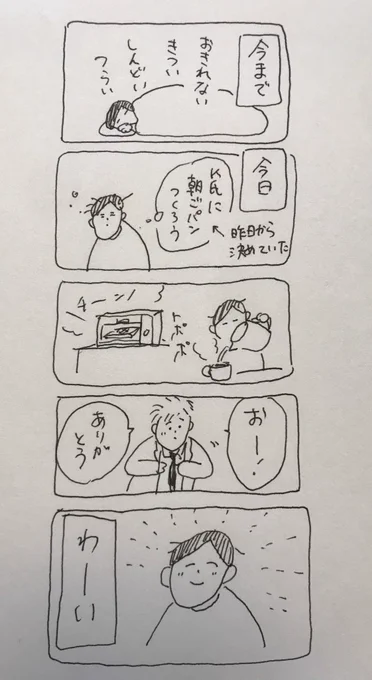 今まで
おきれない
きつい
しんどい
つらい
今日
K氏に
朝ごパン
つくろう
昨日から
決めていた
チーン!
トポポ
おー!
ありが
とう
わーい